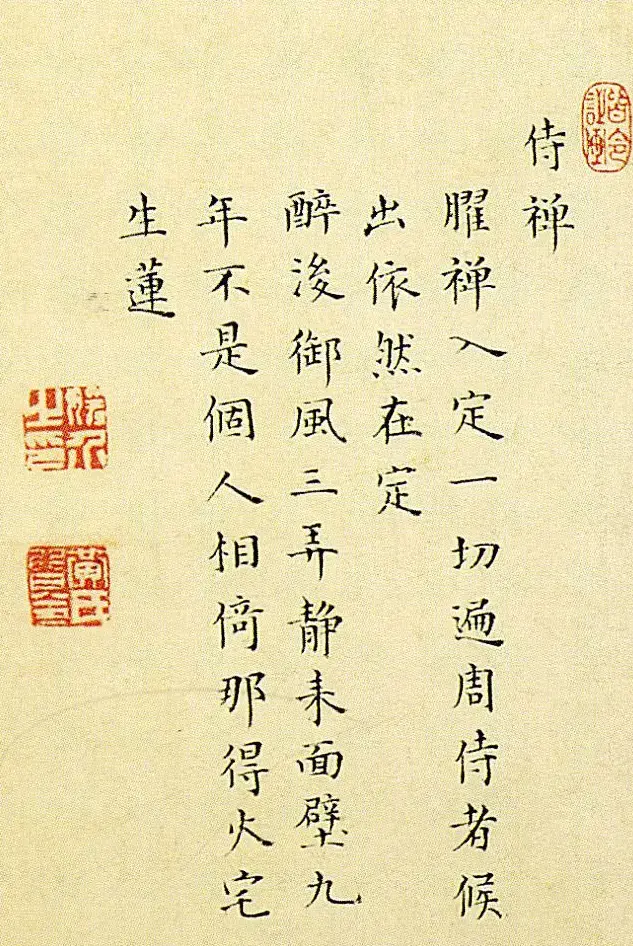 侍禅
臞禅入定一切遍周侍者候
出依然在定
醉後御風三弄静来面壁九
年不是個人相倚那得火宅
生蓮
黄氏皆令